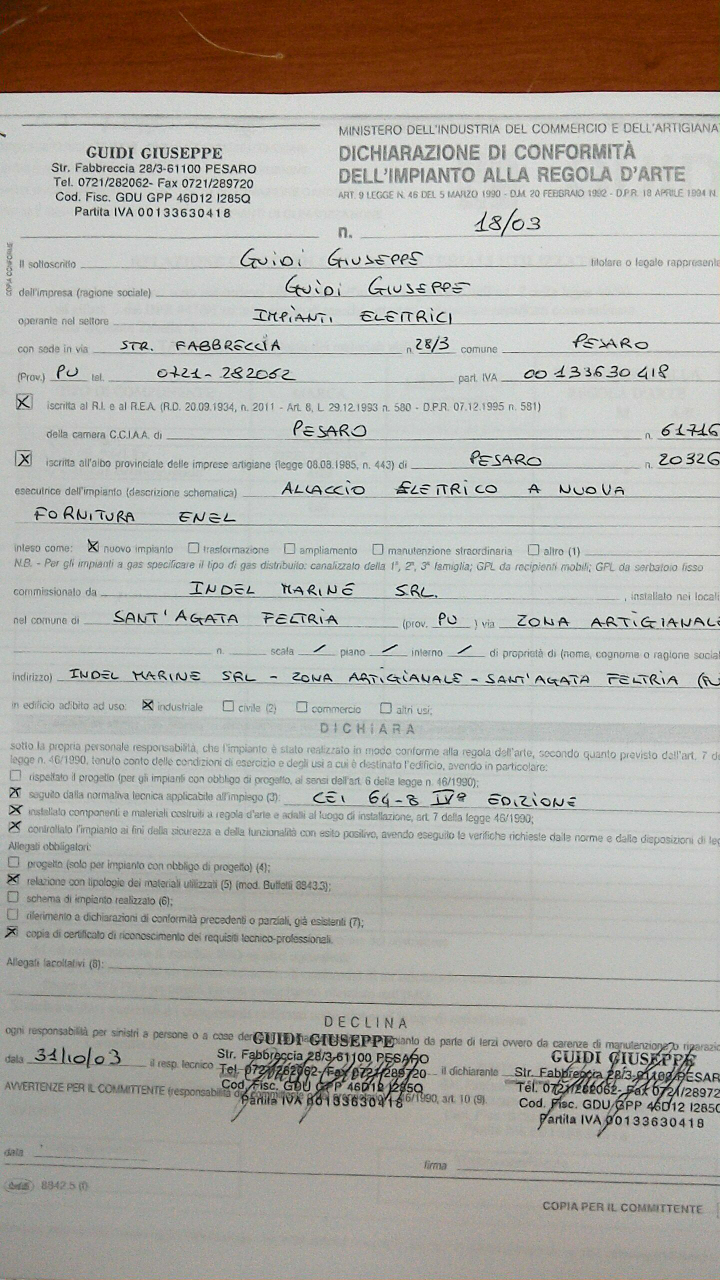 MINISTERO DELL'INDUSTRIA DEL COMMERCIO E DELL'ARTIGIANA
GUIDI GIUSEPPE
Str. Fabbreccia 28/3-61100 PESARO
Tel. 0721/282062- Fax 0721/289720
Cod. Fisc. GDU GPP 46D12 I285Q
Partita IVA 00133630418
DICHIARAZIONE DI CONFORMITÀ
DELL'IMPIANTO ALLA REGOLA D'ARTE
ART. 9 LEGGE N. 46 DEL 5 MARZO 1990 - D.M. 20 FEBBRAIO 1992 - D.P.R. 18 APRILE 1994 N.
n. 18/03
COPIA CONFORME
Il sottoscritto GUIDI GIUSEPPE titolare o legale rappresenta
dell'impresa (ragione sociale) GUIDI GIUSEPPE
operante nel settore IMPIANTI ELETTRICI
con sede in via STR. FABBRECCIA n 28/3 comune PESARO
(Prov.) PU tel. 0721-282062 part. IVA 00133630418
iscritta al R.I. e al R.E.A. (R.D. 20.09.1934, n. 2011 - Art. 8, L. 29.12.1993 n. 580 - D.P.R. 07.12.1995 n. 581)
della camera C.C.I.A.A. di PESARO n. 61716
iscritta all'albo provinciale delle imprese artigiane (legge 08.08.1985, n. 443) di PESARO n. 20326
esecutrice dell'impianto (descrizione schematica) ALLACCIO ELETTRICO A NUOVA
FORNITURA ENEL
inteso come: nuovo impianto trasformazione ampliamento manutenzione straordinaria altro (1)
N.B. - Per gli impianti a gas specificare il tipo di gas distribuito: canalizzato della 1ª, 2ª, 3ª famiglia; GPL da recipienti mobili; GPL da serbatoio fisso
commissionato da INDEL MARINE SRL. , installato nei locali
nel comune di SANT'AGATA FELTRIA (prov. PU ) via ZONA ARTIGIANALE
n. scala / piano / interno / di proprietà di (nome, cognome o ragione social
indirizzo) INDEL MARINE SRL - ZONA ARTIGIANALE - SANT'AGATA FELTRIA (PU
in edificio adibito ad uso: industriale civile (2) commercio altri usi;
DICHIARA
sotto la propria personale responsabilità, che l'impianto è stato realizzato in modo conforme alla regola dell'arte, secondo quanto previsto dall'art. 7 de
legge n. 46/1990, tenuto conto delle condizioni di esercizio e degli usi a cui è destinato l'edificio, avendo in particolare:
rispettato il progetto (per gli impianti con obbligo di progetto, ai sensi dell'art. 6 della legge n. 46/1990);
seguito dalla normativa tecnica applicabile all'impiego (3): CEI 64-8 IVª EDIZIONE
installato componenti e materiali costruiti a regola d'arte e adatti al luogo di installazione, art. 7 della legge 46/1990;
controllato l'impianto ai fini della sicurezza e della funzionalità con esito positivo, avendo eseguito le verifiche richieste dalle norme e dalle disposizioni di leg
Allegati obbligatori:
progetto (solo per impianto con obbligo di progetto) (4);
relazione con tipologie dei materiali utilizzati (5) (mod. Buffetti 8843.3);
schema di impianto realizzato (6);
riferimento a dichiarazioni di conformità precedenti o parziali, già esistenti (7);
copia di certificato di riconoscimento dei requisiti tecnico-professionali.
Allegati facoltativi (8):
DECLINA
ogni responsabilità per sinistri a persone o a cose da parte di terzi ovvero da carenze di manutenzione o riparazio
data 31/10/03 il resp. tecnico il dichiarante
GUIDI GIUSEPPE
Str. Fabbreccia 28/3-61100 PESARO
Tel. 0721/282062- Fax 0721/289720
Cod. Fisc. GDU GPP 46D12 I285Q
Partita IVA 00133630418
GUIDI GIUSEPPE
Str. Fabbreccia 28/3-61100 PESAR
Tel. 0721/282062- Fax 0721/28972
Cod. Fisc. GDU GPP 46D12 I285
Partita IVA 00133630418
AVVERTENZE PER IL COMMITTENTE (responsabilità 46/1990, art. 10 (9).
data
firma
8842.5 (I)
COPIA PER IL COMMITTENTE